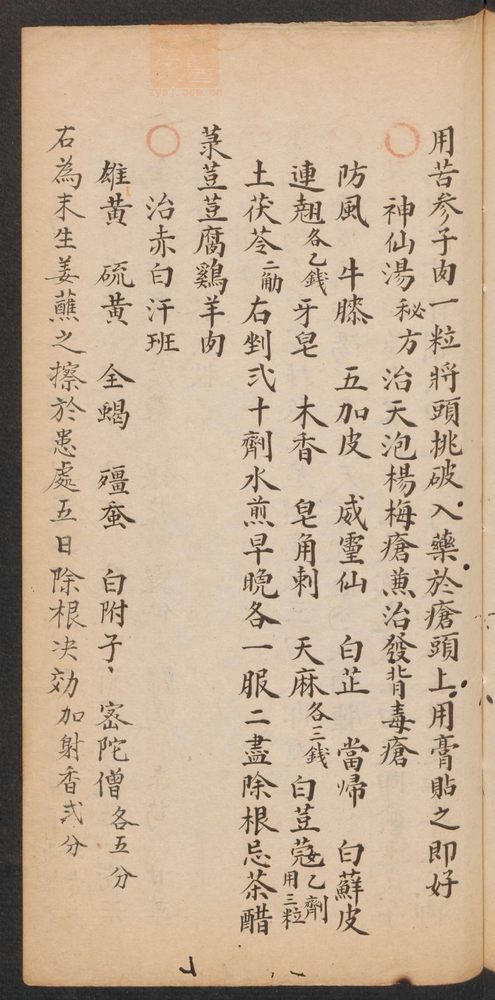 用苦参子肉一粒將頭挑破入藥於瘡頭上用膏貼之即好
神仙湯秘方治天泡楊梅瘡蒸治發背毒瘡
防風 牛膝 五加皮 威靈仙 白芷 當歸 白蘚皮
連翹各乙錢 牙皂 木香 皂角刺 天麻各三錢 白荳蔻乙劑用三粒
土茯苓二觔 右剉弍十劑水煎早晚各一服二盡除根忌茶醋
菉荳荳腐鷄羊肉
治赤白汗班
雄黃 硫黃 全蝎 殭蚕 白附子 宻陀僧各五分
右為末生姜蘸之擦於患處五日除根决効加射香弍分